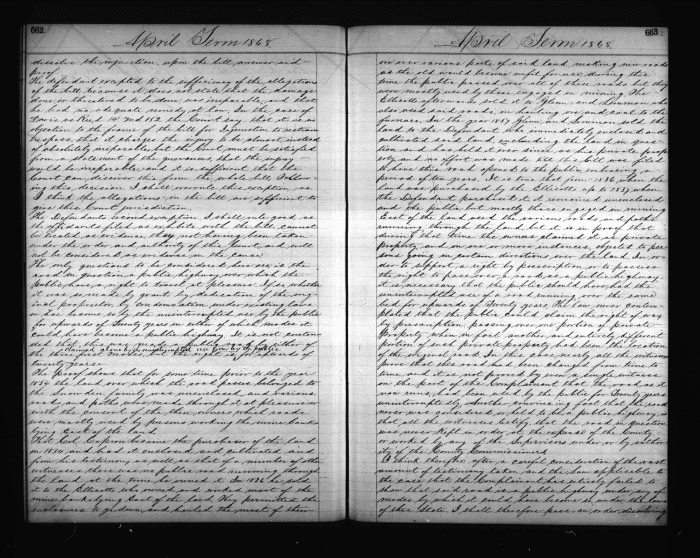 662
April Term 1868.
dissolve the injunction, upon the bill, answer and
proof.
The defendant excepted to the sufficiency of the allegations
of the bill because it does not state that the damage
done or threatened to be done, was irreparable, and that
he had no adequate remedy at law. In the case of
the Court say that it is no
objection to the frame of the bill for Injunction to restrain
trespass that it charges the injury to be almost, instead
of absolutely irreparable, but the Court must be satisfied
from a statement of the grievances that the injury
would be irreparable, and it is sufficient that the
Court can discover this from the whole bill. Follow-
ing this decision I shall overrule this exception, as
I think the allegations in the bill are sufficient to
give this Court jurisdiction.
The Defendants second exception I shall rule good as
the affidavits filed as exhibits with the bill cannot
be treated as evidence, they not having been taken
under the order and authority of this Court, and will
not be considered as evidence in the cause.
The only question to be considered here is: is the
road in question a public highway over which the
public have a right to travel at pleasure. If so, whether
it was so made by grant, by dedication of the orig-
inal proprietor, by condemnation under existing laws,
or has become so by the uninterrupted use by the public
for upwards of Twenty years in either of which modes it
could have become a public highway. It is not conten-
ded that this was made a public road by either of
the three first modes
for upwards of
twenty years.
The proof shows that for some time prior to the year
the land over which the road passes belonged to
the Snowden family, was unenclosed, and various
roads and paths were made through it at pleasure or
with the consent of the then owners, which roads
were mostly used by persons working the mine bank
lying East of the land.
That Col. Capron became the purchaser of the land
in 1836, and had it enclosed and cultivated, and
from his testimony as well as that of a number of other
witnesses there was no public road running through
the land at the time he owned it. In 1836 he sold
it to the Ellicotts who owned and worked most of the
mine banks lying East of the land. They permitted the
enclosures to go down, and hauled the most of their
663
April Term 1868.
ore over various parts of said land, making new roads
as the old would become unfit for use; during this
time the public passed over some of these roads but they
were mostly used by those engaged in mining. The
Ellicotts afterwards sold it to Glenn and who
also used said roads, in hauling ore and coal to the
furnace. In the year 1857 Glenn and sold the
land to the Defendant who immediately enclosed and
cultivated said land, including the land in ques-
tion and has held it ever since as his private prop-
erty, and no effort was made till this bill was filed
to have this road opened to the public, embracing a
period of ten years. It is true that from 1836, when the
land was purchased by the Ellicotts up to 1857 when
the Defendant purchased it, it remained unenclosed
and the public but mostly those engaged in mining
East of the land used the various roads and paths
running through the land, but it is in proof that
during that time the owners claimed it as private
property, and in one or more instances, objected to per-
sons going in certain directions over the land. In or-
der to support a right by prescription, or to possess
the right to pass over a road, as a public highway,
it is necessary that the public should have had the
uninterrupted use of a road running over the same
bed for upwards of Twenty years. The law never contem-
plated that the public could claim the right of way
by prescription passing over one portion of private
property, when in fact another and entirely different
portion of such private property had been the location
of the original road. In this case nearly all the witnesses
prove that this road had been changed from time to
time and it is not proved by even a single witness
on the part of the Complainant that the road, as it
now runs, had been used by the public for Twenty years
uninterruptedly. Another convincing fact that this road
never was considered, or held to be a public highway, is
that all the witnesses testify, that the road in question
was never kept in order at the expense of the County
or worked by any of the Supervisors under or by author-
ity of the County Commissioners.
I think therefore after a careful consideration of the vast
amount of testimony taken, and the law applicable to
the case, that the Complainant has entirely failed to
show that said road is a public highway under any of the
modes by which it could have become so under the laws
of this State. I shall therefore pass an order dissolving